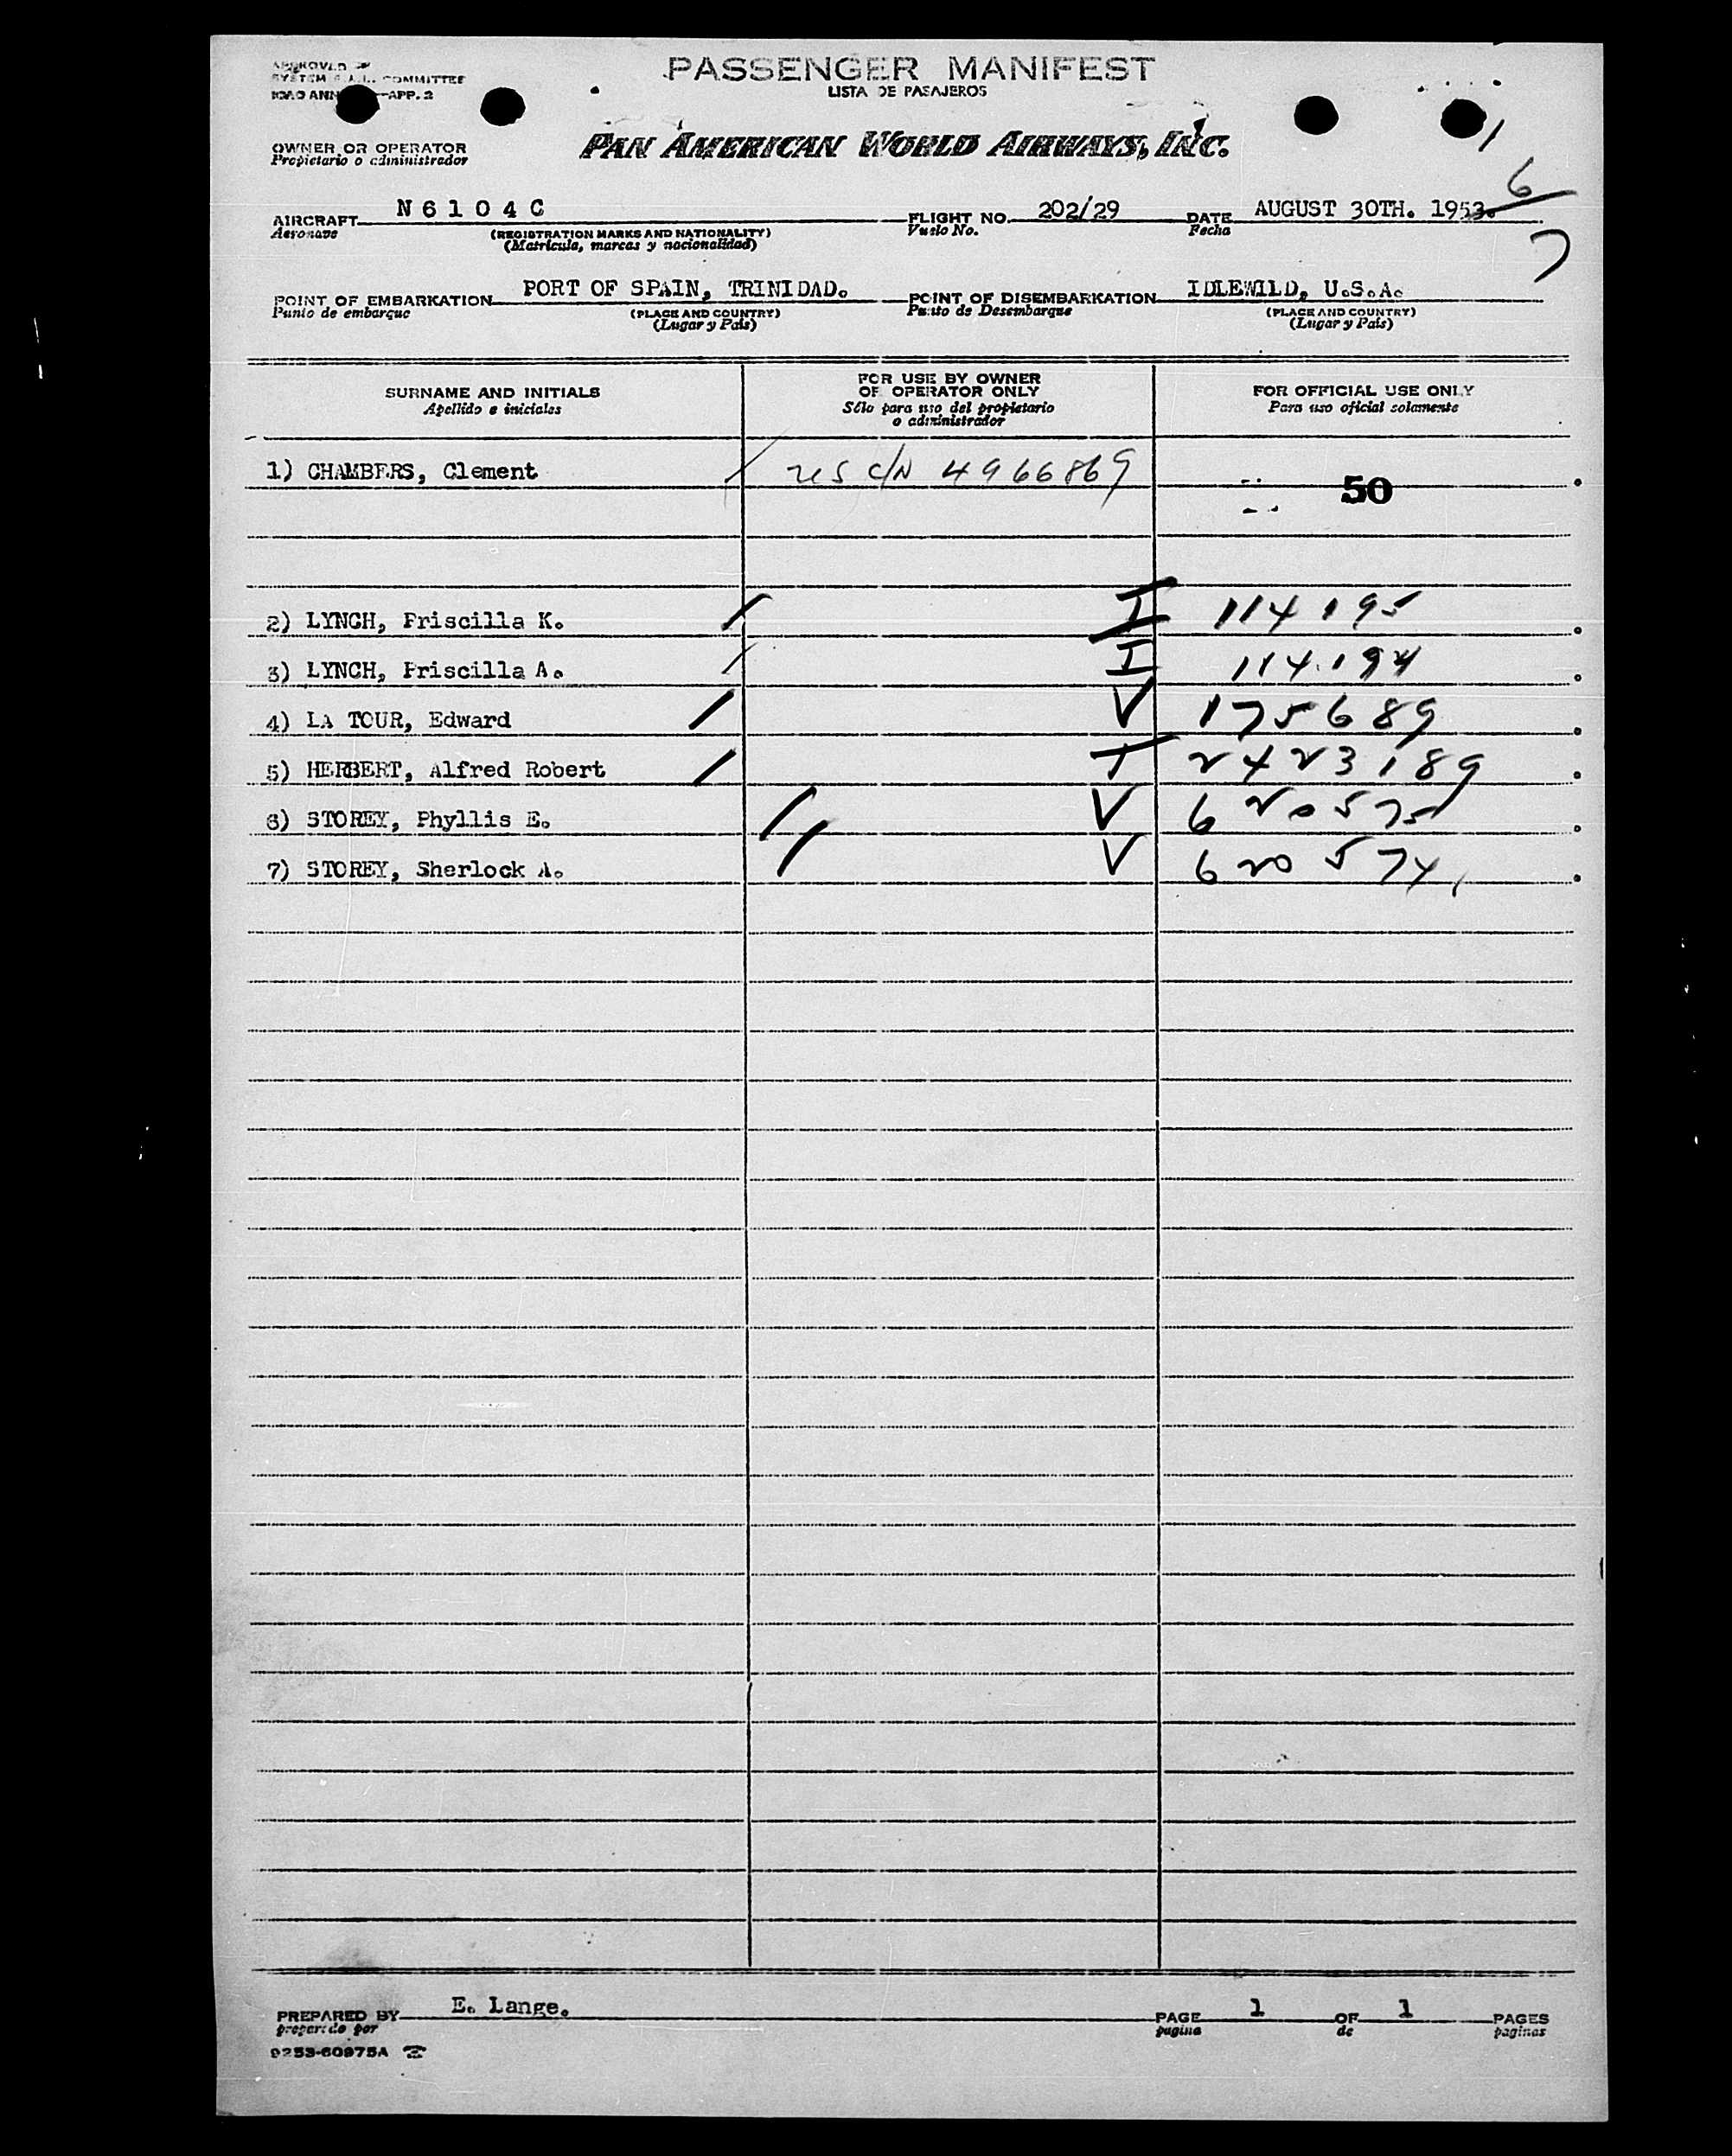 APPROVED BY
SYSTEM F.A.L. COMMITTEE
ICAO ANN -APP. 2
PASSENGER MANIFEST
LISTA DE PASAJEROS
OWNER OR OPERATOR
Propietario o administrador
PAN AMERICAN WORLD AIRWAYS, INC.
1
6
7
AIRCRAFT N 6 1 0 4 C FLIGHT NO. 202/29 DATE AUGUST 30TH. 1953.
Aeronave (REGISTRATION MARKS AND NATIONALITY) Vuelo No. Fecha
(Matrícula, marcas y nacionalidad)
POINT OF EMBARKATION PORT OF SPAIN, TRINIDAD. POINT OF DISEMBARKATION IDLEWILD, U.S.A.
Punto de embarque (PLACE AND COUNTRY) Punto de Desembarque (PLACE AND COUNTRY)
(Lugar y País) (Lugar y País)
SURNAME AND INITIALS FOR USE BY OWNER OR OPERATOR ONLY FOR OFFICIAL USE ONLY
Apellido e iniciales Sólo para uso del propietario o administrador Para uso oficial solamente
1) CHAMBERS, Clement US C/N 4966869
50
2) LYNCH, Priscilla K. I 114195
3) LYNCH, Priscilla A. I 114194
4) LA TOUR, Edward V 175689
5) HERBERT, Alfred Robert T 2423189
6) STOREY, Phyllis E. V 620575
7) STOREY, Sherlock A. V 620574
PREPARED BY E. Lange. PAGE 1 OF 1 PAGES
preparado por pagina de paginas
9253-60975A